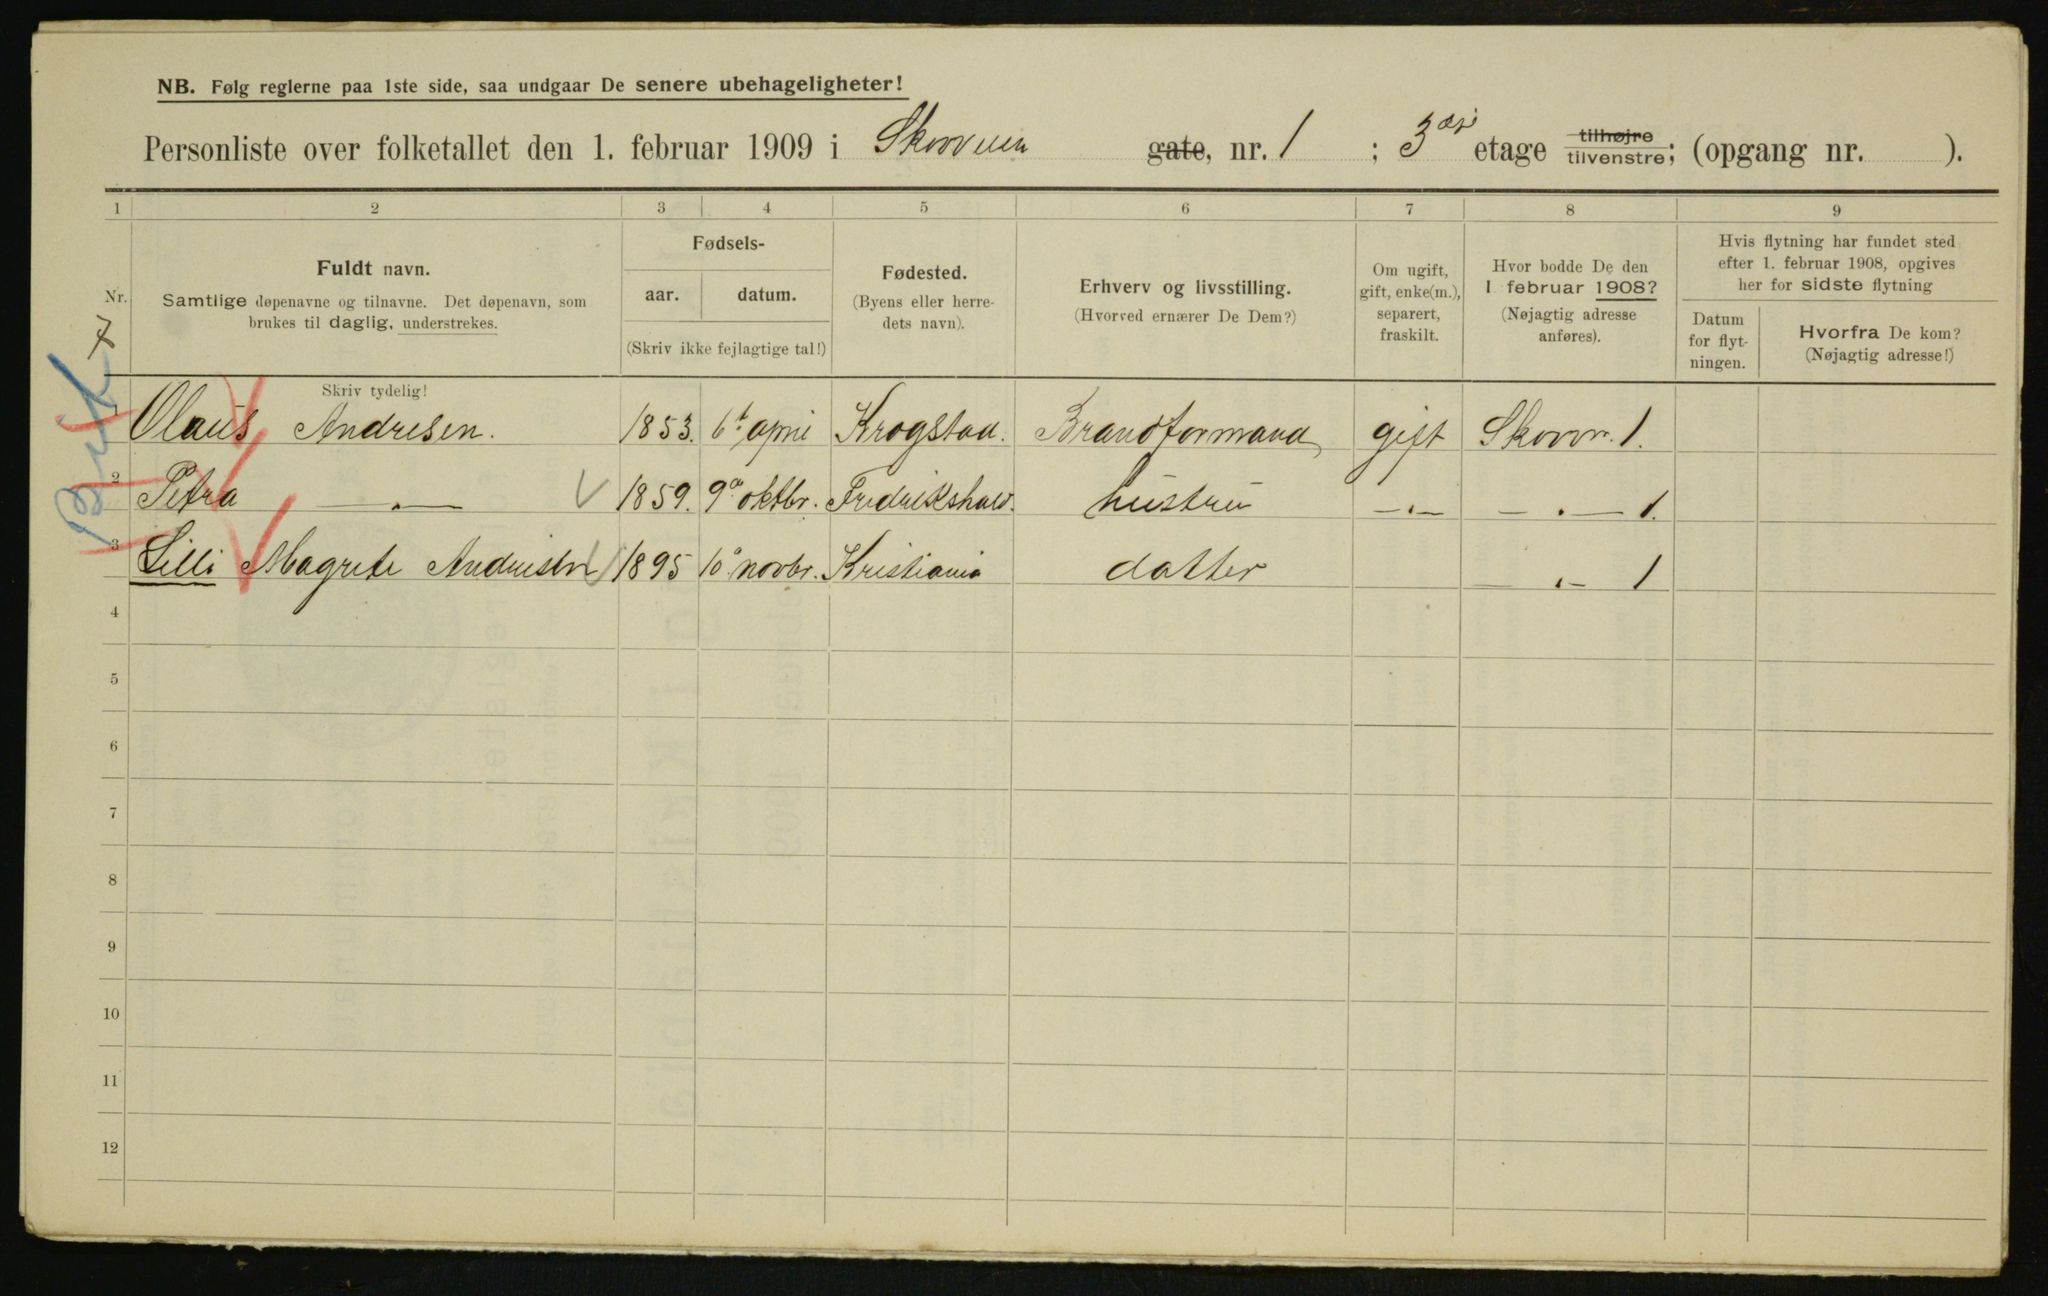 NB. Følg reglerne paa 1ste side, saa undgaar De senere ubehageligheter!
Personliste over folketallet den 1. februar 1909 i Skovveien gate, nr. 1 ; 3 etage tilhøjre tilvenstre; (opgang nr. ).
1 2 3 4 5 6 7 8 9
Nr. Fuldt navn. Samtlige døpenavne og tilnavne. Det døpenavn, som brukes til daglig, understrekes.
Fødsels- aar. datum. (Skriv ikke fejlagtige tal!)
Fødested. (Byens eller herredets navn).
Erhverv og livsstilling. (Hvorved ernærer De Dem?)
Om ugift, gift, enke(m.), separert, fraskilt.
Hvor bodde De den 1 februar 1908? (Nøjagtig adresse anføres).
Hvis flytning har fundet sted efter 1. februar 1908, opgives her for sidste flytning
Datum for flytningen. Hvorfra De kom? (Nøjagtig adresse!)
7
Skriv tydelig!
1 Olaus Andresen. 1853. 6t april Krogstad. Brandformand gift Skovv. 1.
2 Petra —„— 1859. 9 oktbr. Fredrikshald. hustru —„— —„— 1.
3 Lilli Magrete Andresen 1895 10 novbr. Kristiania datter —„— 1
4
5
6
7
8
9
10
11
12